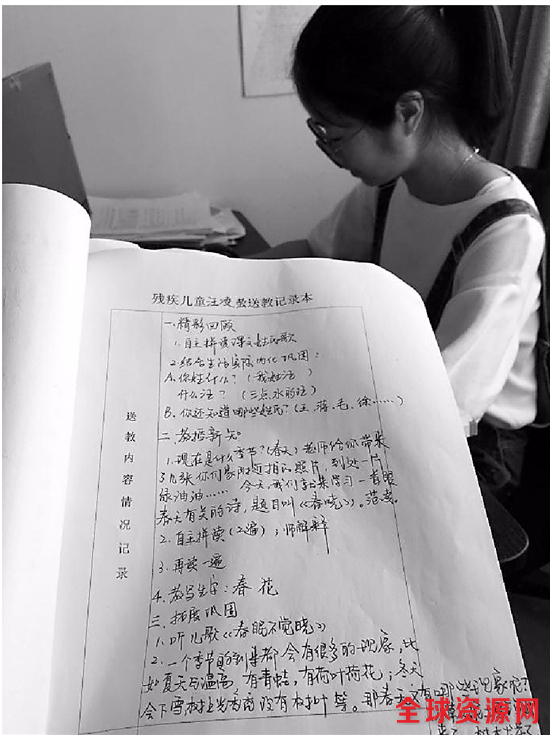 残疾儿童汪凌 送教记录本
送教内容情况记录
一、精彩回顾
1.自主拼读课文姓氏歌
2.结合生活实际内化巩固:
A.你姓什么?(我姓汪)
什么汪?(三点水的汪)
B.你还知道哪些姓氏?(王、蒋、毛、徐……)
二、教授新知
1.现在是什么季节?(春天)老师给你带来
了几张你们家附近拍的照片,到处一片
绿油油……今天,我们就来学习一首跟
春天有关的诗,题目叫《春晓》。范读。
2.自主拼读(2遍);师解释
3.再读一遍
4.教写生字:春 花
三、拓展巩固
1.听儿歌《春眠不觉晓》
2.一个季节的到来都会有很多的现象,比
如夏天气温高,有青蛙,有荷叶荷花;冬天
会下雪,树上光秃秃没有树叶等。那春天又有哪些现象呢?
全球资源网